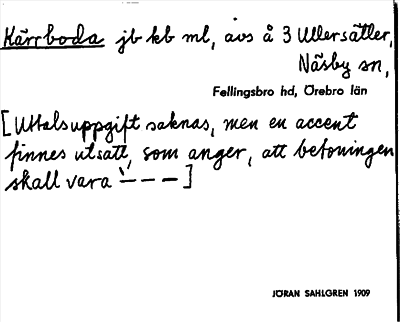 Kärrboda jb kb ml, avs å 3 Ullersätter,
Näsby sn,
Fellingsbro hd, Örebro län
[Uttalsuppgift saknas, men en accent
finnes utsatt, som anger, att betoningen
skall vara –́ – – –]
JÖRAN SAHLGREN 1909